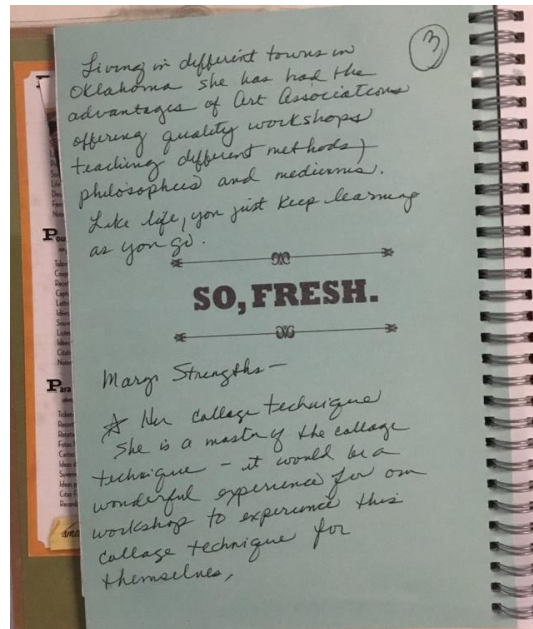 3
Living in different towns in
Oklahoma she has had the
advantages of Art Associations
offering quality workshops
teaching different methods,
philosophies and mediums.
Like life, you just keep learning
as you go.
SO, FRESH.
Marys Strengths —
☆ Her collage technique
She is a master of the collage
technique - it would be a
wonderful experience for our
workshop to experience this
collage technique for
themselves,